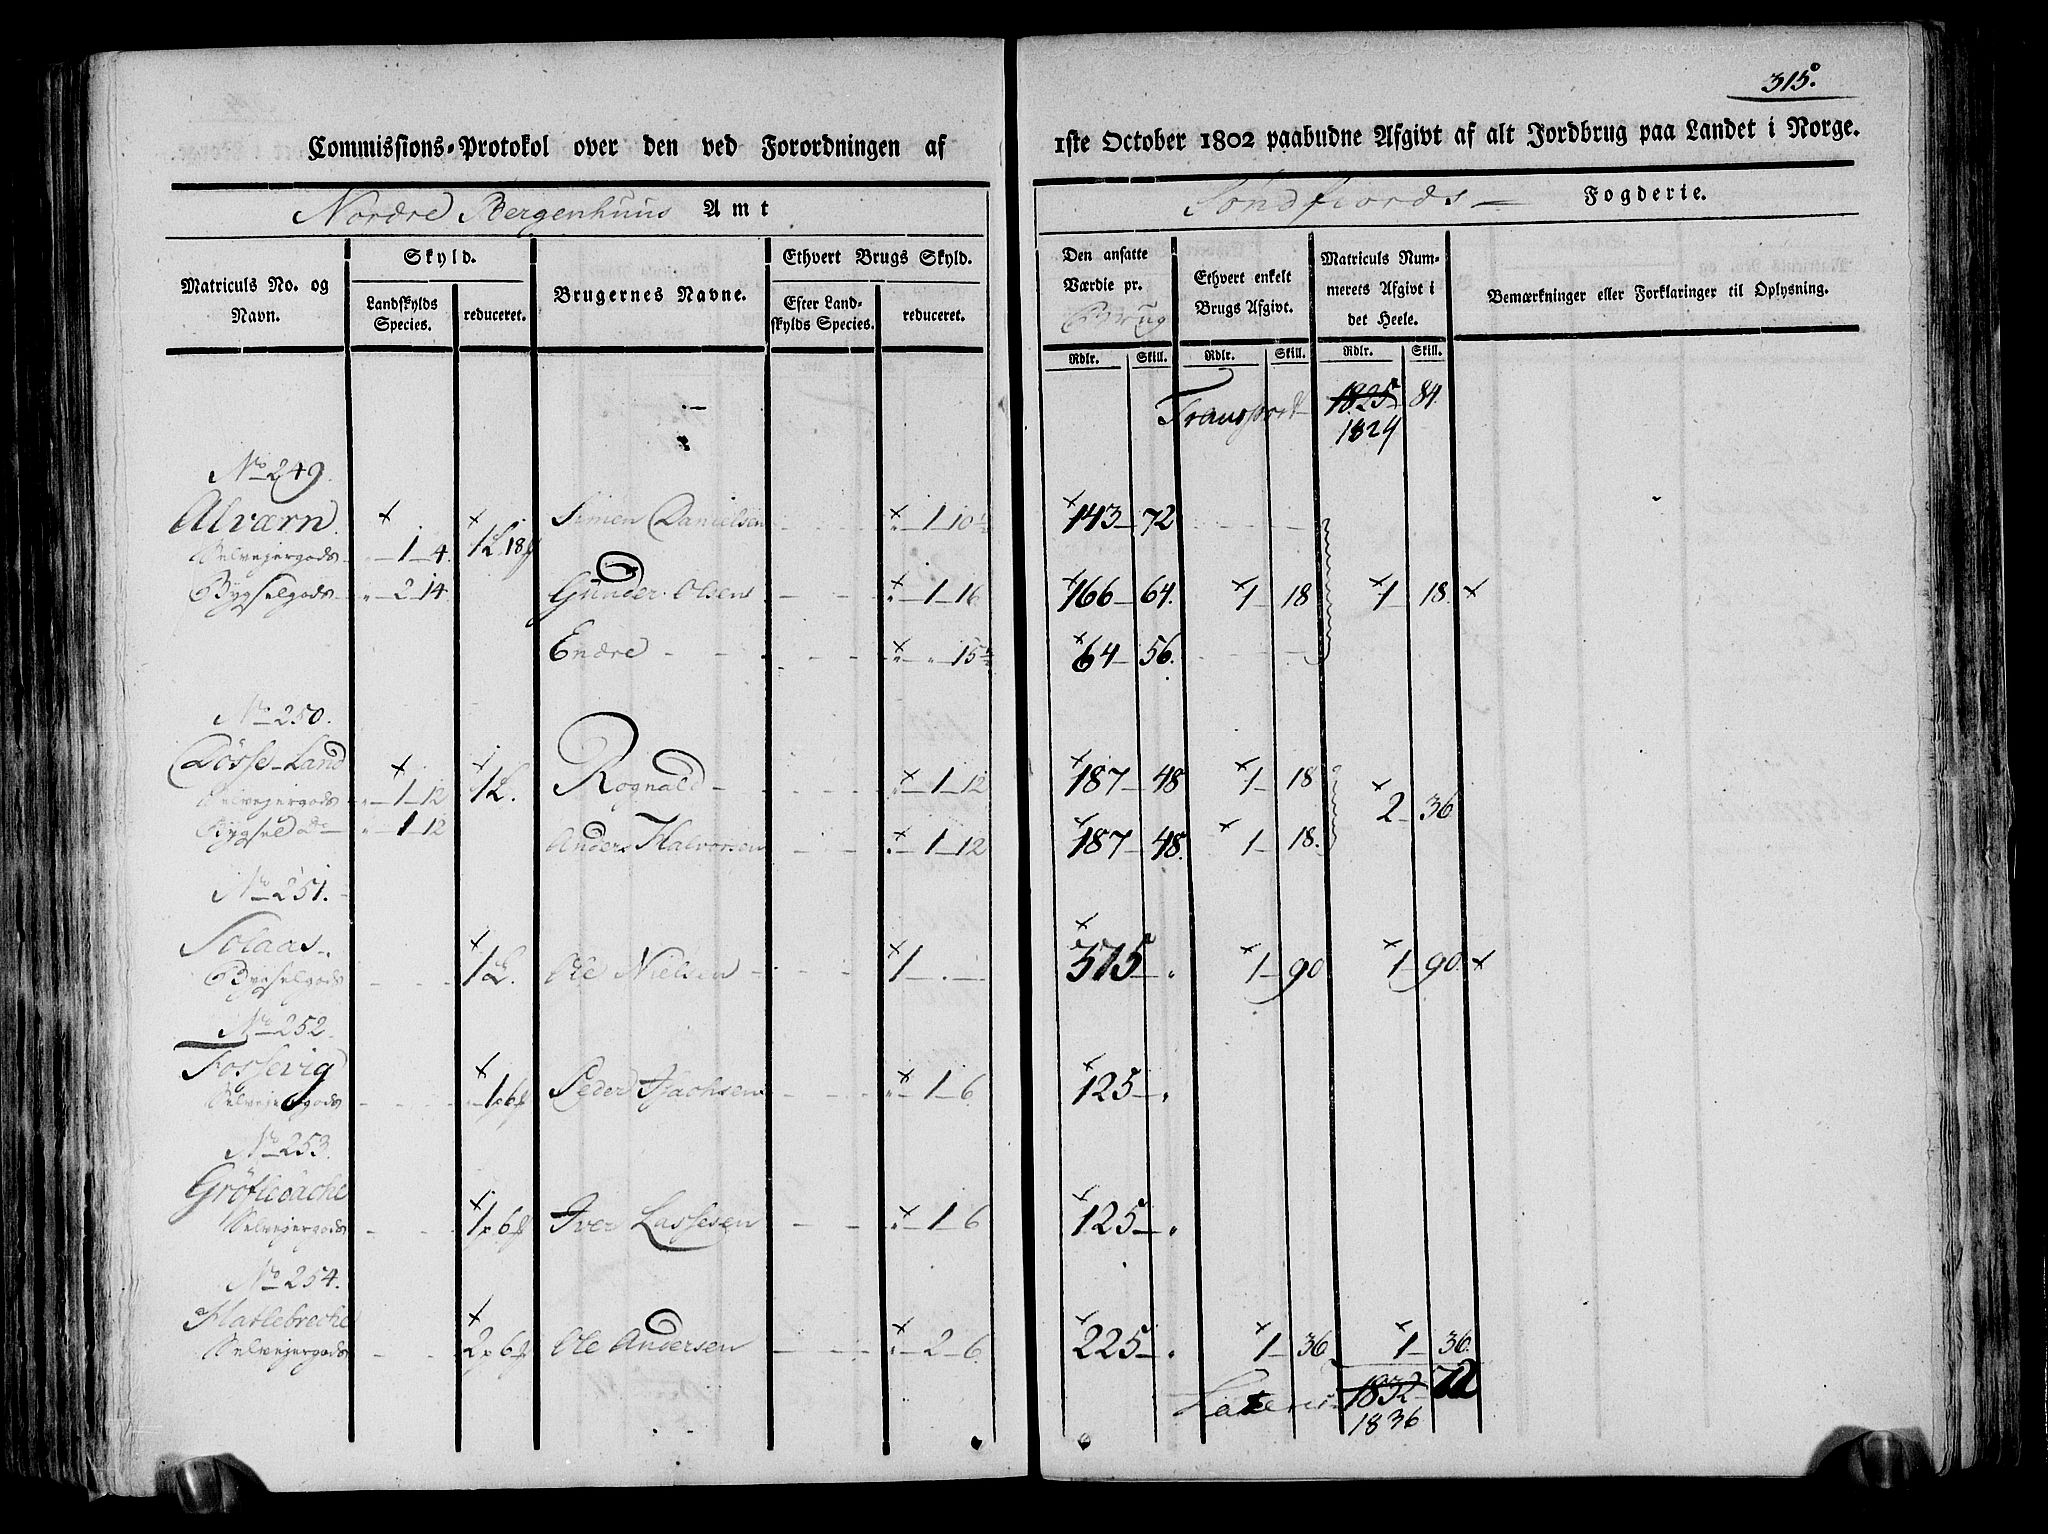 315.
Commissions-Protokol over den ved Forordningen af 1ste October 1802 paabudne Afgivt af alt Jordbrug paa Landet i Norge.
Nordre Bergenhuus Amt
Søndfiords Fogderie.
Matriculs No. og Navn.
Skyld.
Landskylds Species.
reduceret.
Brugernes Navne.
Ethvert Brugs Skyld.
Efter Landskylds Species.
reduceret.
Den ansatte Værdie pr. Brug
Ethvert enkelt Brugs Afgivt.
Matriculs Nummerets Afgivt i det Heele.
Bemærkninger eller Forklaringer til Oplysning.
Rdlr. Skill. Rdlr. Skill. Rdlr. Skill.
Transport 1825 84.
1824
No 249.
Alværn. Simen Danielsen 1 10½ 143 72
Selvejergods 1 4. 1L. 18
Bygselgods 2 14 Gunder Olsens 1 16 166 64. 1 18 1 18.
Endre 15½ 64 56.
No 250.
Dösse-Land Rognald 1 12 187 48 1 18
Selvejergods 1 12 1L. 2 36
Bygsel do 1 12 Anders Halvorsen 1 12 187 48. 1 18.
No 251.
Solaas.
Bygselgods 1L. Ole Nielsen 1 375 1 90 1 90.
No 252.
Fossevig
Selvejergods 1p 6 Peder 1 6. 125
No 253.
Selvejergods 1p 6 Iver Lassesen 1 6 125
No 254.
Hatlebrecke
Selvejergods 2p 6 Ole Andersen 2 6. 225 1 36 1 36.
Lateris 1832 72
1836